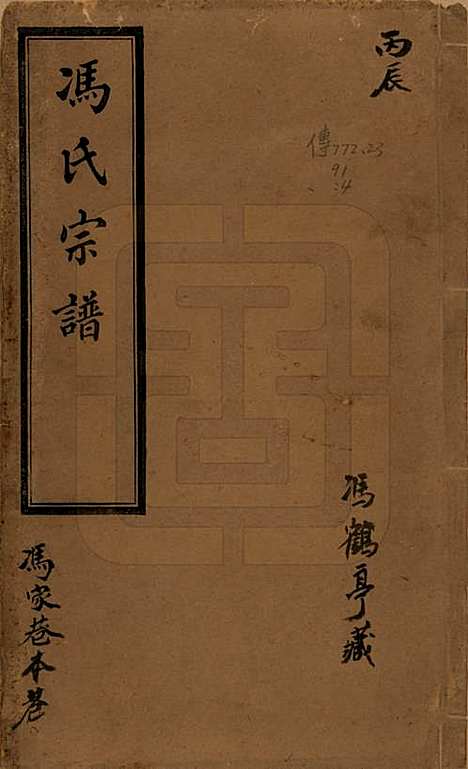 丙辰
傳772.23
91
:4
馮鶴亭藏
馮氏宗譜
馮家巷本巷